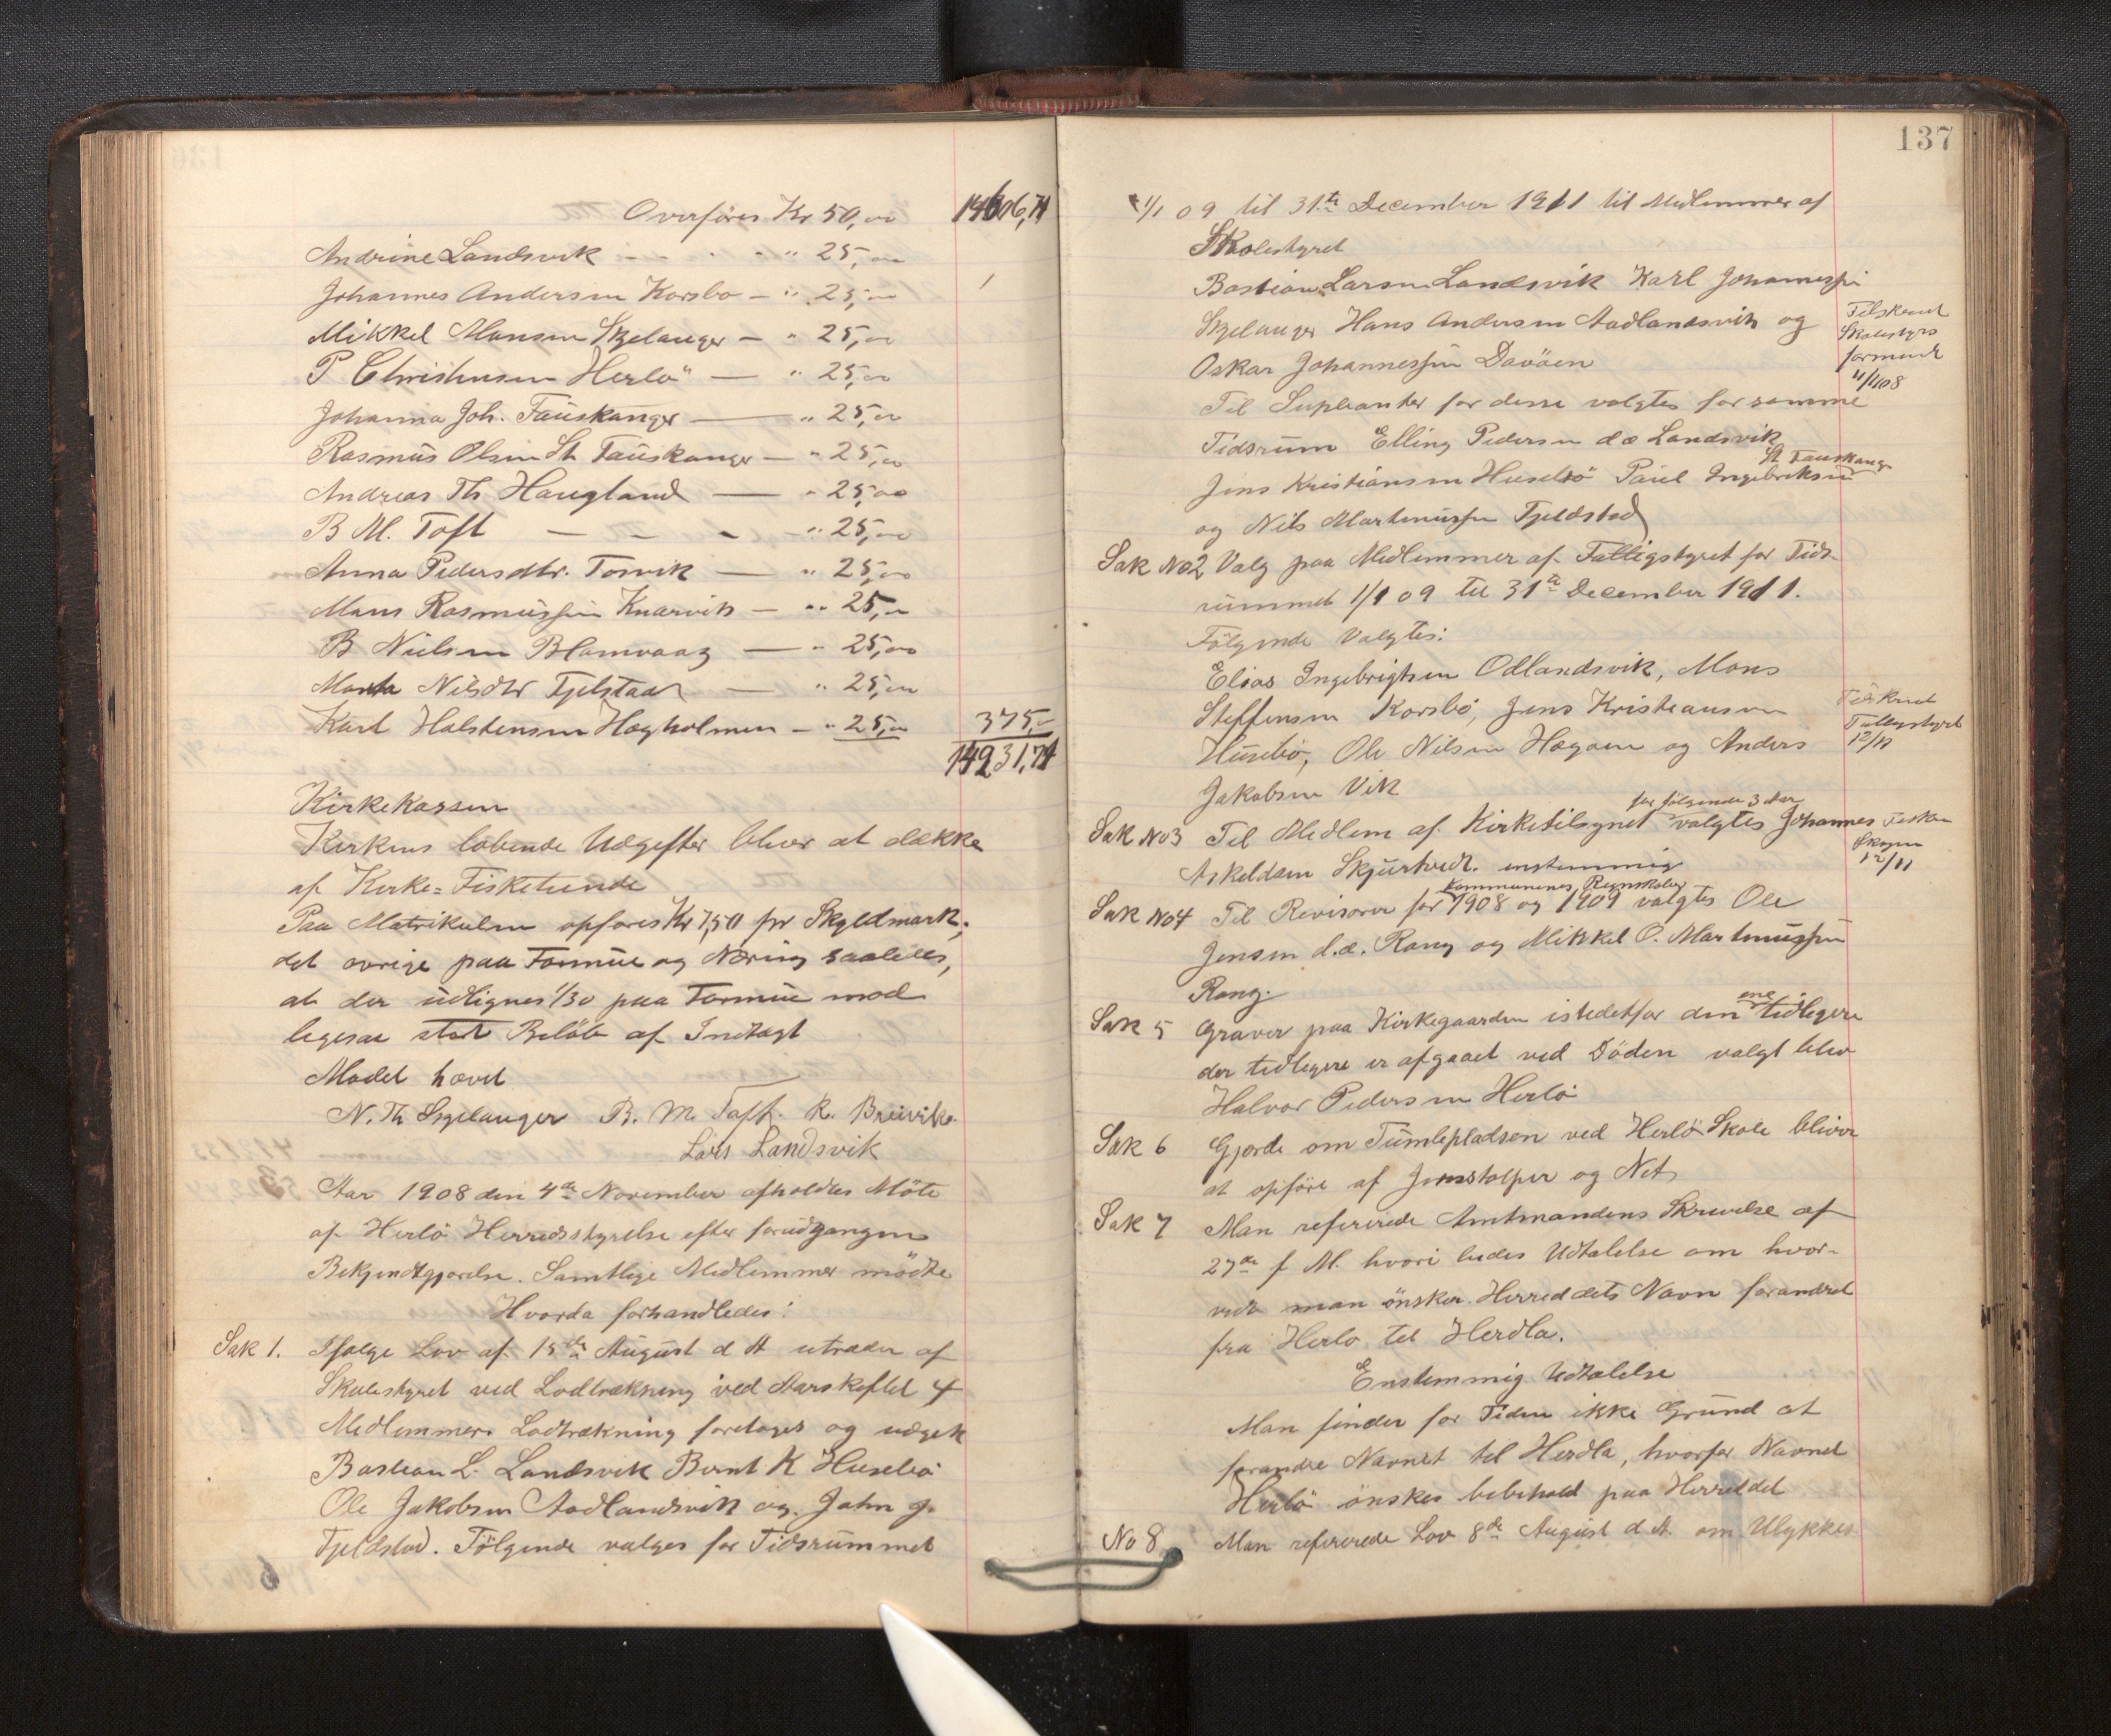 Overføres Kr 50,00 14606,71
Andrine Landsvik — " 25,00
Johannes Andersen Korsbø — " 25,00
Mikkel Monsen Skjelanger — " 25,00
P Christensen Herlö — " 25,00
Johanna Joh. Fauskanger — " 25,00
Rasmus Olsen St. Fauskanger — " 25,00
Andreas Th. Haugland — " 25,00
B M. Toft — " 25,00
Anna Pedersdtr. Torvik — " 25,00
Mons Rasmussen Knarvik — " 25,00
B Nielsen Blomvaag — " 25,00
Marta Nilsdtr Fjelstad — " 25,00
Karl Halstensen Hagholmen — " 25,00 375,-
14931,71
Kirkekassen
Kirkens løbende Udgifter bliver at dække
af Kirke-Fisketiende
Paa Matrikulen opføres Kr 7,50 pr Skyldmark;
det øvrige paa Formue og Næring saaledes,
at der udlignes 1/30 paa Formue mod
ligesaa stort Beløb af Indtægt
Mødet hævet
N. Th Skjelanger B. M. Toft. R. Breivik.
Lars Landsvik
Aar 1908 den 4de November afholdtes Möte
af Herlö Herredsstyrelse efter forudgangen
Bekjendtgjørelse. Samtlige Medlemmer mødte
Hvorda forhandledes:
Sak 1. Ifølge Lov af 15de August d A utræder af
Skolestyret ved Lodtrækning ved Aarskiftet 4
Medlemmer. Lodtrækning foretoges og udgik
Bastian L. Landsvik Bernt K Husebø
Ole Jakobsen Aadlandsvik og John J.
Fjeldstad. Fölgende valges for Tidsrummet
137
1/1 09 til 31te December 1911 til Medlemmer af
Skolestyret
Bastian Larsen Landsvik Karl Johannessen
Skjelanger Hans Andersen Aadlandsvik og
Oskar Johannessen Davøen
Tilskrevet
Skolestyrs
formand
11/11 08
Til Supleanter for disse valgtes for samme
Tidsrum Elling Pedersen d.æ Landsvik
Jens Kristiansen Husebö Paul Ingebriktsen St. Fauskang
og Nils Martinussen Fjeldstad
Sak No 2 Valg paa Medlemmer af Fattigstyret for Tids-
rummet 1/1 09 til 31te December 1911.
Fölgende Valgtes:
Elias Ingebrigtsen Odlandsvik, Mons
Steffensen Korsbö, Jens Kristiansen
Husebö, Ole Nilsen Hægøen og Anders
Jakobsen Vik
Tilskrevet
Fattigstyret
12/11
Sak No 3 Til Medlem af Kirketilsynet for følgende 3 Aar valgtes Johannes
Askeldsen Skjurtvedt. enstemmig
12/11
Sak No 4 Til Revisorer for Kommunenes Regnskaber 1908 og 1909 valgtes Ole
Jensen d.æ. Rong og Mikkel O. Martinussen
Rong.
Sak 5 Graver paa Kirkegaarden istedetfor den ene tidligere
der tidligere er afgaaet ved Döden valgt blev
Halvor Pedersen Herlö
Sak 6 Gjerde om Tumlepladsen ved Herlö Skole bliver
at opföre af Jernstolper og Net
Sak 7 Man refererede Amtmandens Skrivelse af
27de f M. hvori bedes Udtalelse om hvor-
vidt man önsker Herreddets Navn forandret
fra Herlo til Herdla.
Enstemmig Udtalelse
Man finder for Tiden ikke Grund at
forandre Navnet til Herdla, hvorfor Navnet
Herlö önskes bibehold paa Herreddet
No 8 Man refererede Lov 8de August d A. om Ulykkes